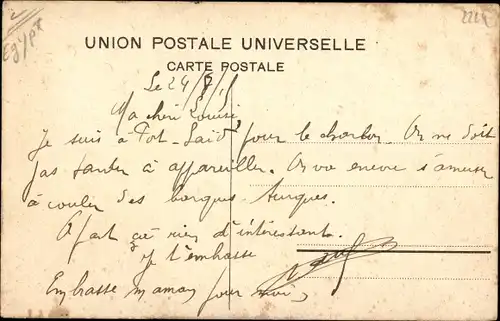 Egypt
UNION POSTALE UNIVERSELLE
CARTE POSTALE
Le 24/8/15
Ma chère Louise
Je suis à Pot-Saïd pour le charbon. On ne doit
pas tarder à appareiller. On va encore s'amuser
à couler des barques turques.
A part ça rien d'intéressant.
Je t'embrasse
Embrasse maman pour moi,